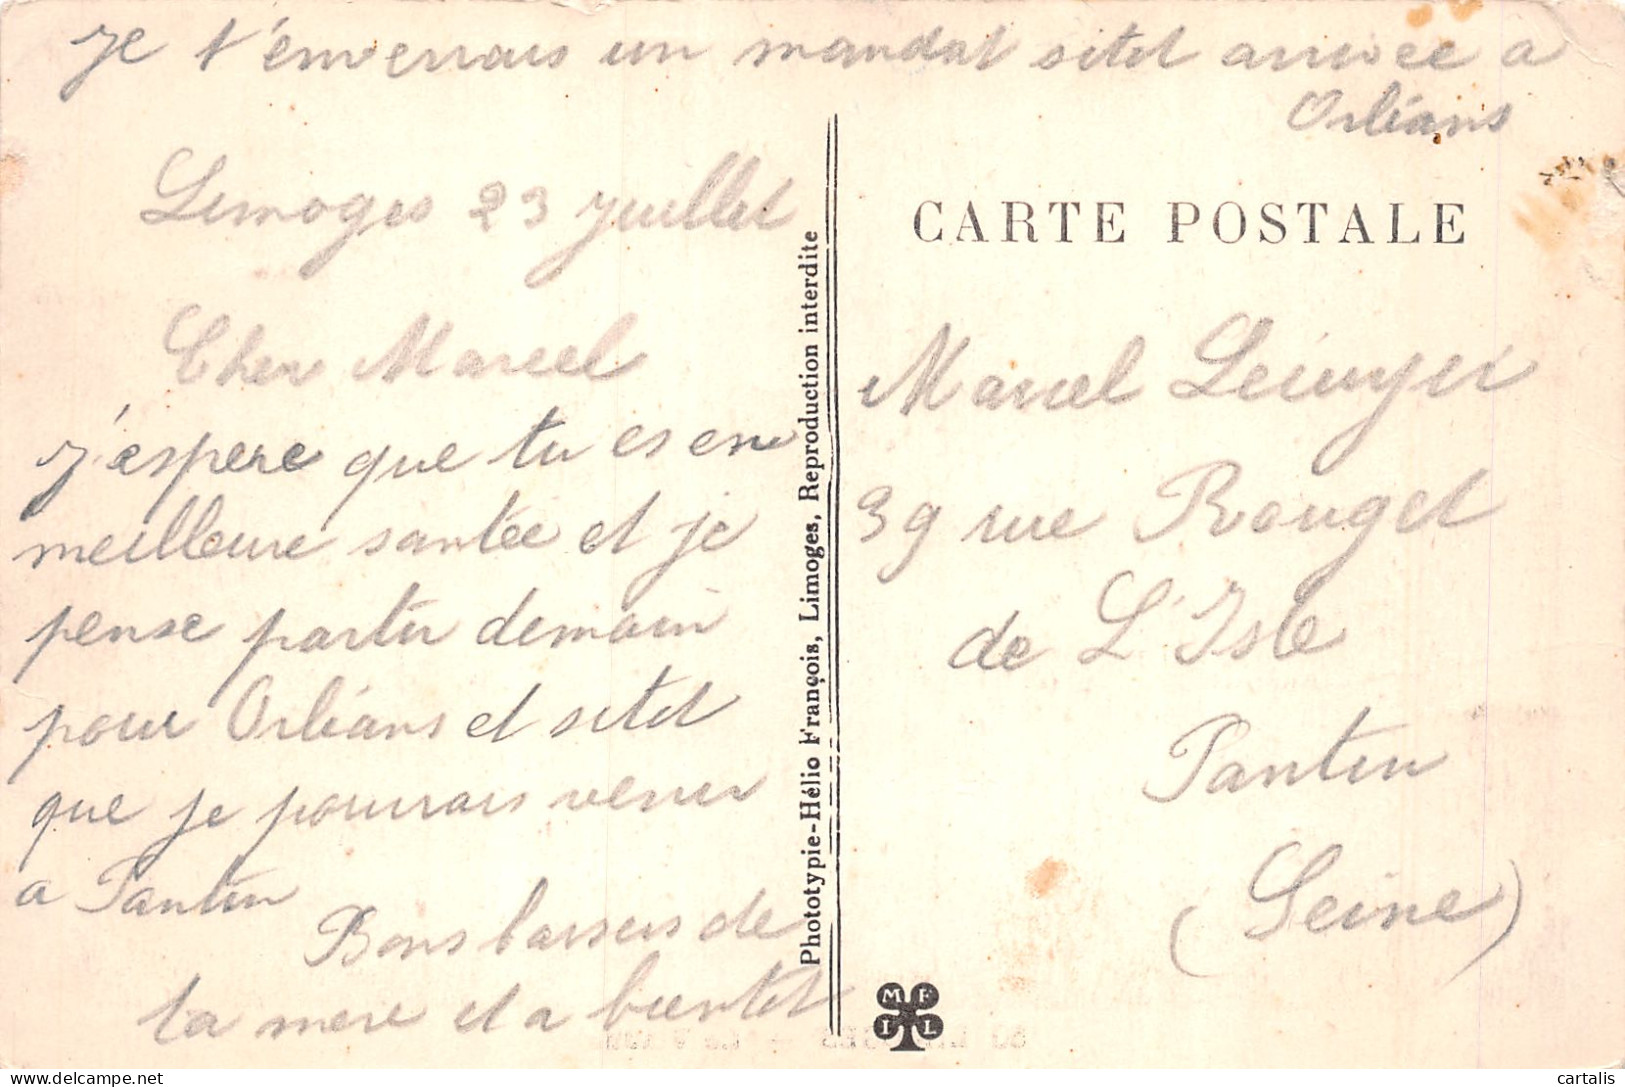 je t'enverrais un mandat sitot arrivée a
Orléans
Limoges 23 juillet
Cher Marcel
j'espere que tu es en
meilleure santée et je
pense partir demain
pour Orléans et sitot
que je pourrais venir
a Pantin
Bons baisers de
ta mere et a bientot
Phototypie-Hélio François, Limoges, Reproduction interdite
CARTE POSTALE
Marcel Lécuyer
39 rue Rouget
de L'Isle
Pantin
(Seine)
M F
I L
cartalis